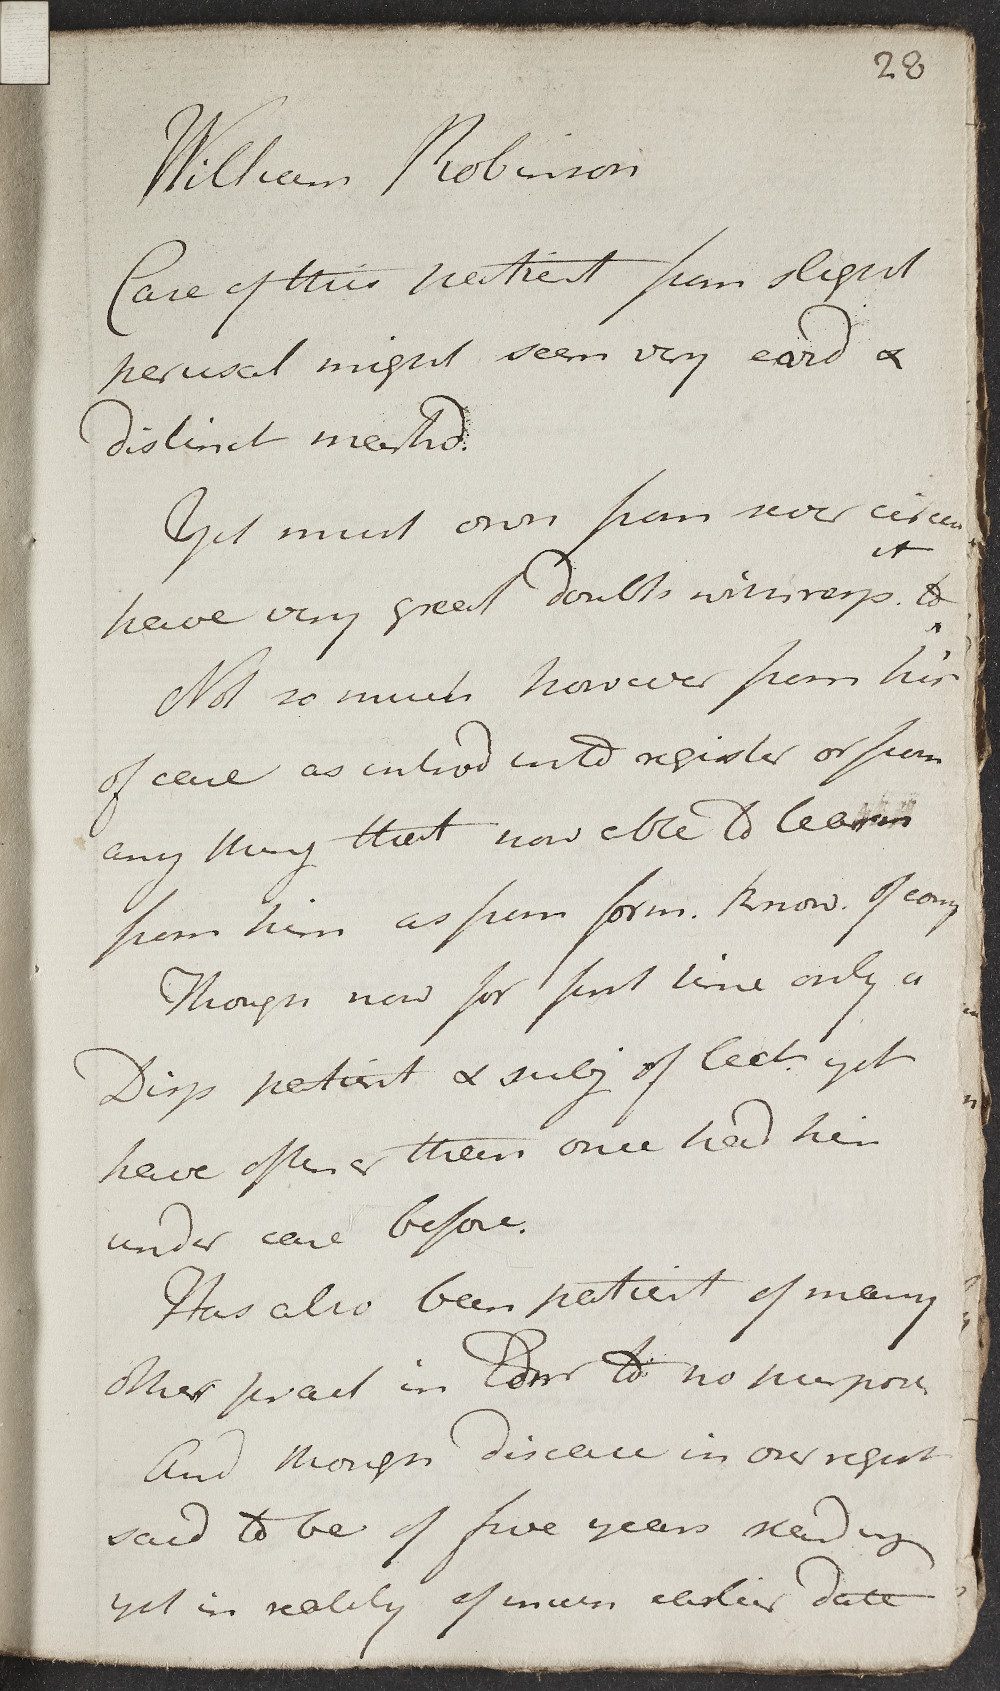 28
William Robinson
Case of this patient from slight
perusal might seem very easy &
distinct
Yet must own from sever circum
it
have very great doubts with resp. to
Not so much however from his
of case as introd into register or from
any thing that now able to learn
from him as from form. know. of com
Though now for first time only a
Disp patient & subj of lect. yet
have oftener than once had him
under care before.
Has also been patient of many
other pract in Edinr to no purpose
And though disease in our regist
said to be of five years standing
yet in reality of much earlier date